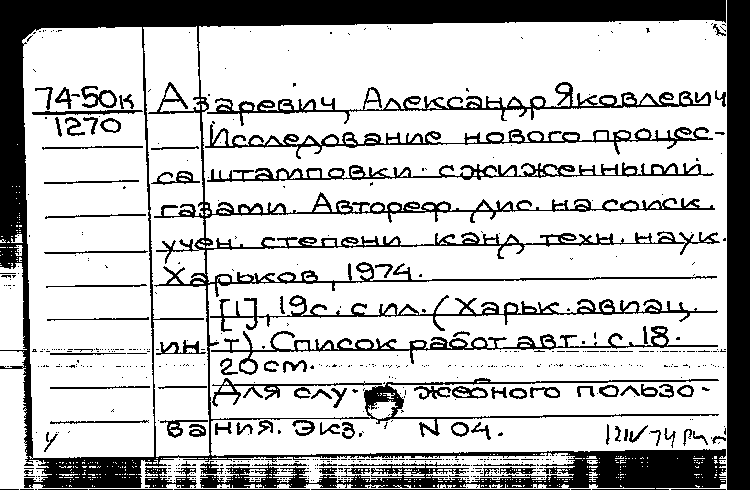 74-50к
1270
Азаревич, Александр Яковлевич
Исследование нового процес-
са штамповки сжиженными
газами. Автореф. дис. на соиск.
учен. степени канд. техн. наук.
Харьков, 1974.
[1], 19с. с ил. (Харьк. авиац.
ин-т). Список работ авт.: с. 18.
20 cm.
Для слу-жебного пользо-
вания. Экз. N 04.